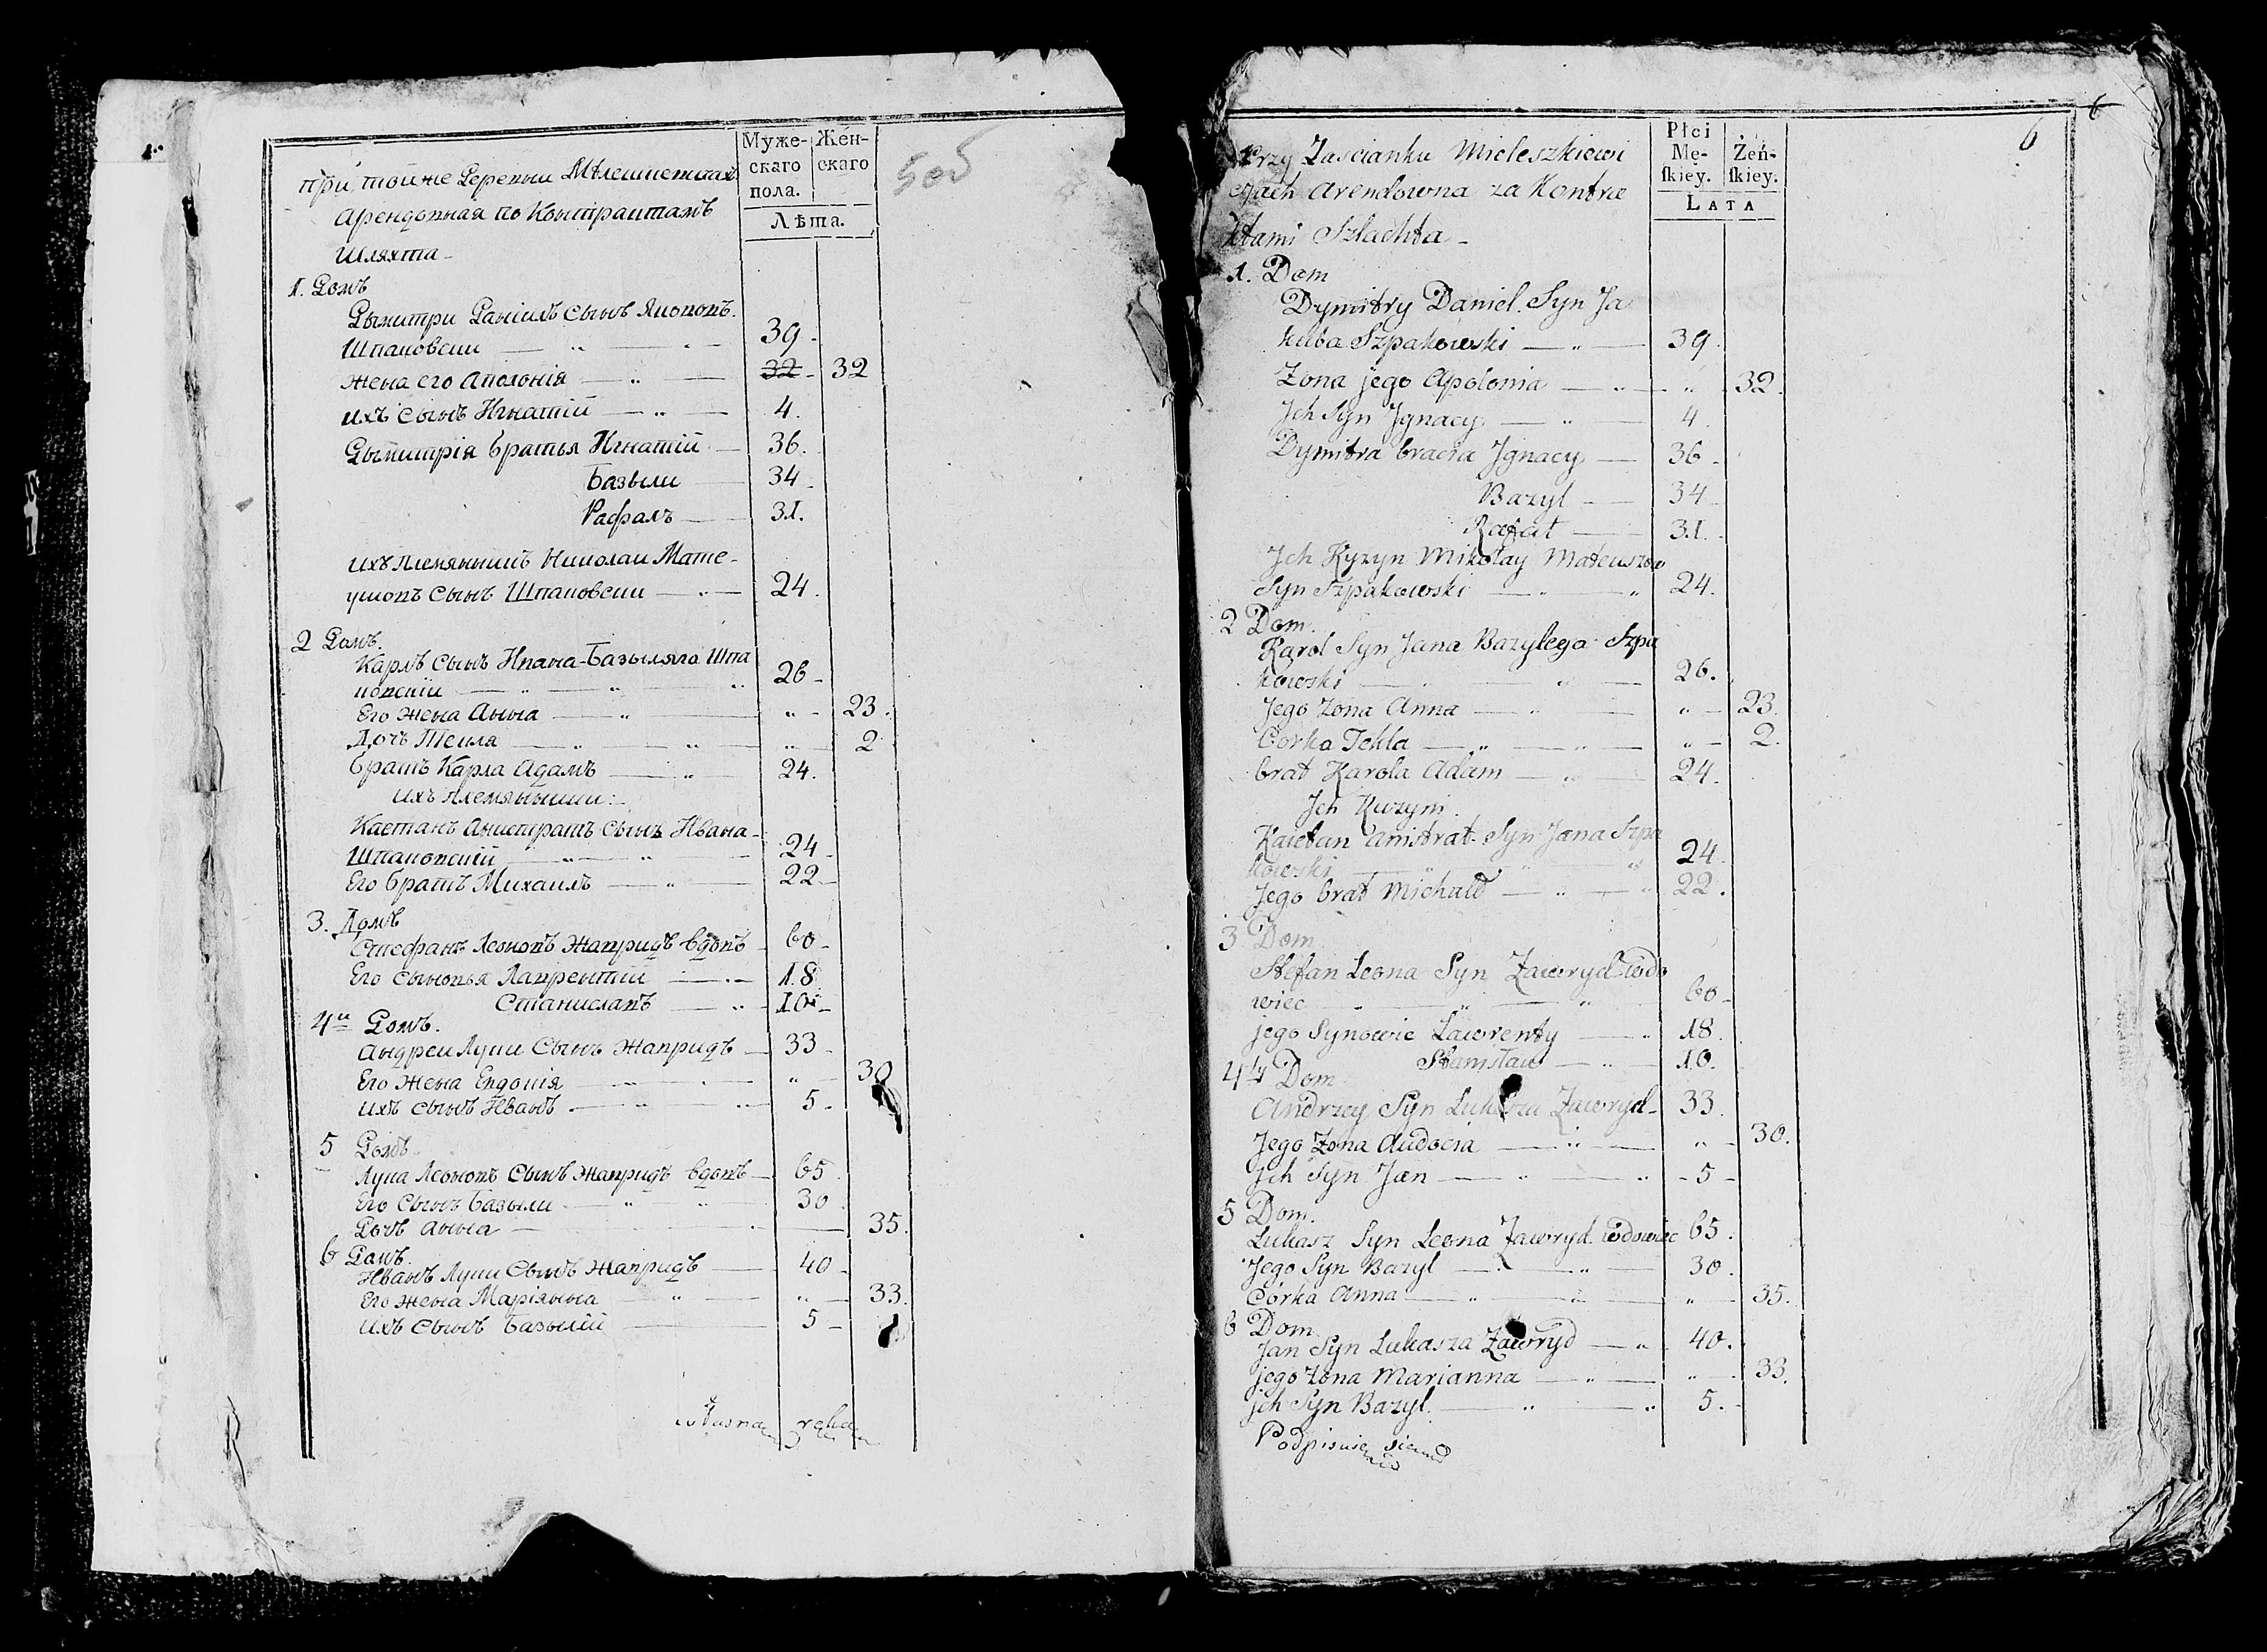 Муже- Жен-
скаго скаго
пола.
Лѣта.
505
при тойже Деревни Мѣлешкевичахъ
Арендовная по Контрактамъ
Шляхта -
1. Домъ
Дымитри Данiилъ сынъ Якововъ.
Шпаковски — „ — 39.
жена его Аполонiя — „ — 32 - 32
ихъ сынъ Игнатiй — „ — 4.
Дымитрiя братья Игнатiй — 36.
Базыли — 34 -
Рафалъ — 31.
ихъ племянникъ Николаи Мате-
ушовъ сынъ Шпаковски — „ — 24.
2 Домъ.
Карлъ сынъ Ивана-Базыляго Шпа
ковскiй — „ — „ 26 -
Его жена Анна — „ — „ - 23.
Дочъ Текля — „ — „ — „ - 2
братъ Карла Адамъ — „ — 24.
ихъ племянники:
Каетанъ Анистратъ сынъ Ивана -
Шпаковскiй — „ — „ — 24 -
Его братъ Михаилъ — „ — 22 -
3. Домъ
Стефанъ Леоновъ Жавридъ вдовъ - 60 -
Его сыновья Лаврентiй — 18
Станиславъ — „ - 10 -
4й Домъ.
Андреи Луки Сынъ Жавридъ — 33 -
Его жена Евдокiя — „ - 30
ихъ сынъ Иванъ — „ — „ 5 -
5 Домъ
Лука Леоновъ Сынъ Жавридъ вдовъ — 65.
Его Сынъ Базыли — „ — „ 30.
Дочъ Анна — 35.
6 Домъ.
Иванъ Луки Сынъ Жавридъ — 40 -
Его жена Марiянна — „ — „ — 33.
ихъ сынъ Базылiй — 5 -
własną ręką
6
6
Płci
Mę- Żeń-
ſkiey. ſkiey.
LATA
Przy Zascianku Mieleszkiewi
czach Arendowna za Kontra
ktami Szlachta -
1. Dom
Dymitry Daniel Syn Ja
kuba Szpakowski — „ — 39.
Zona jego Apolonia — „ — „ 32.
Jch Syn Jgnacy — „ — 4.
Dymitra bracia Jgnacy — 36 -
Bazyl — 34
Rafał — 31.
Jch Kyzyn Mikołay Mateuszow
Syn Szpakowski — „ — „ 24.
2 Dom.
Karol Syn Jana Bazylego Szpa
kowski — „ — „ — 26.
Jego Zona Anna — „ — „ - 23.
Corka Tekla — „ — „ — „ - 2.
brat Karola Adam — „ — 24.
Jch Kuzyni.
Kaietan Anistrat Syn Jana Szpa
kowski — „ — „ 24
Jego brat Michałl — „ — „ 22.
3 Dom
Stefan Leona Syn Zawryd wdo
wiec — „ — „ 60 -
jego Synowie Ławrenty — „ 18.
Stanisław — „ — 10.
4ty Dom
Andrzey Syn Lukasza Zawryd - 33.
Jego Zona Audocia — „ — „ - 30.
Jch Syn Jan — „ — „ - 5 -
5 Dom.
Lukasz Syn Leona Zawryd. wdowiec 65.
Jego Syn Bazyl — „ — 30.
Córka Anna — „ — „ — „ - 35.
6 Dom.
Jan Syn Lukasza Zawryd — „ 40.
jego Zona Marianna — „ — „ - 33.
jch Syn Bazyl. — „ — „ 5. -
Podpisuie się